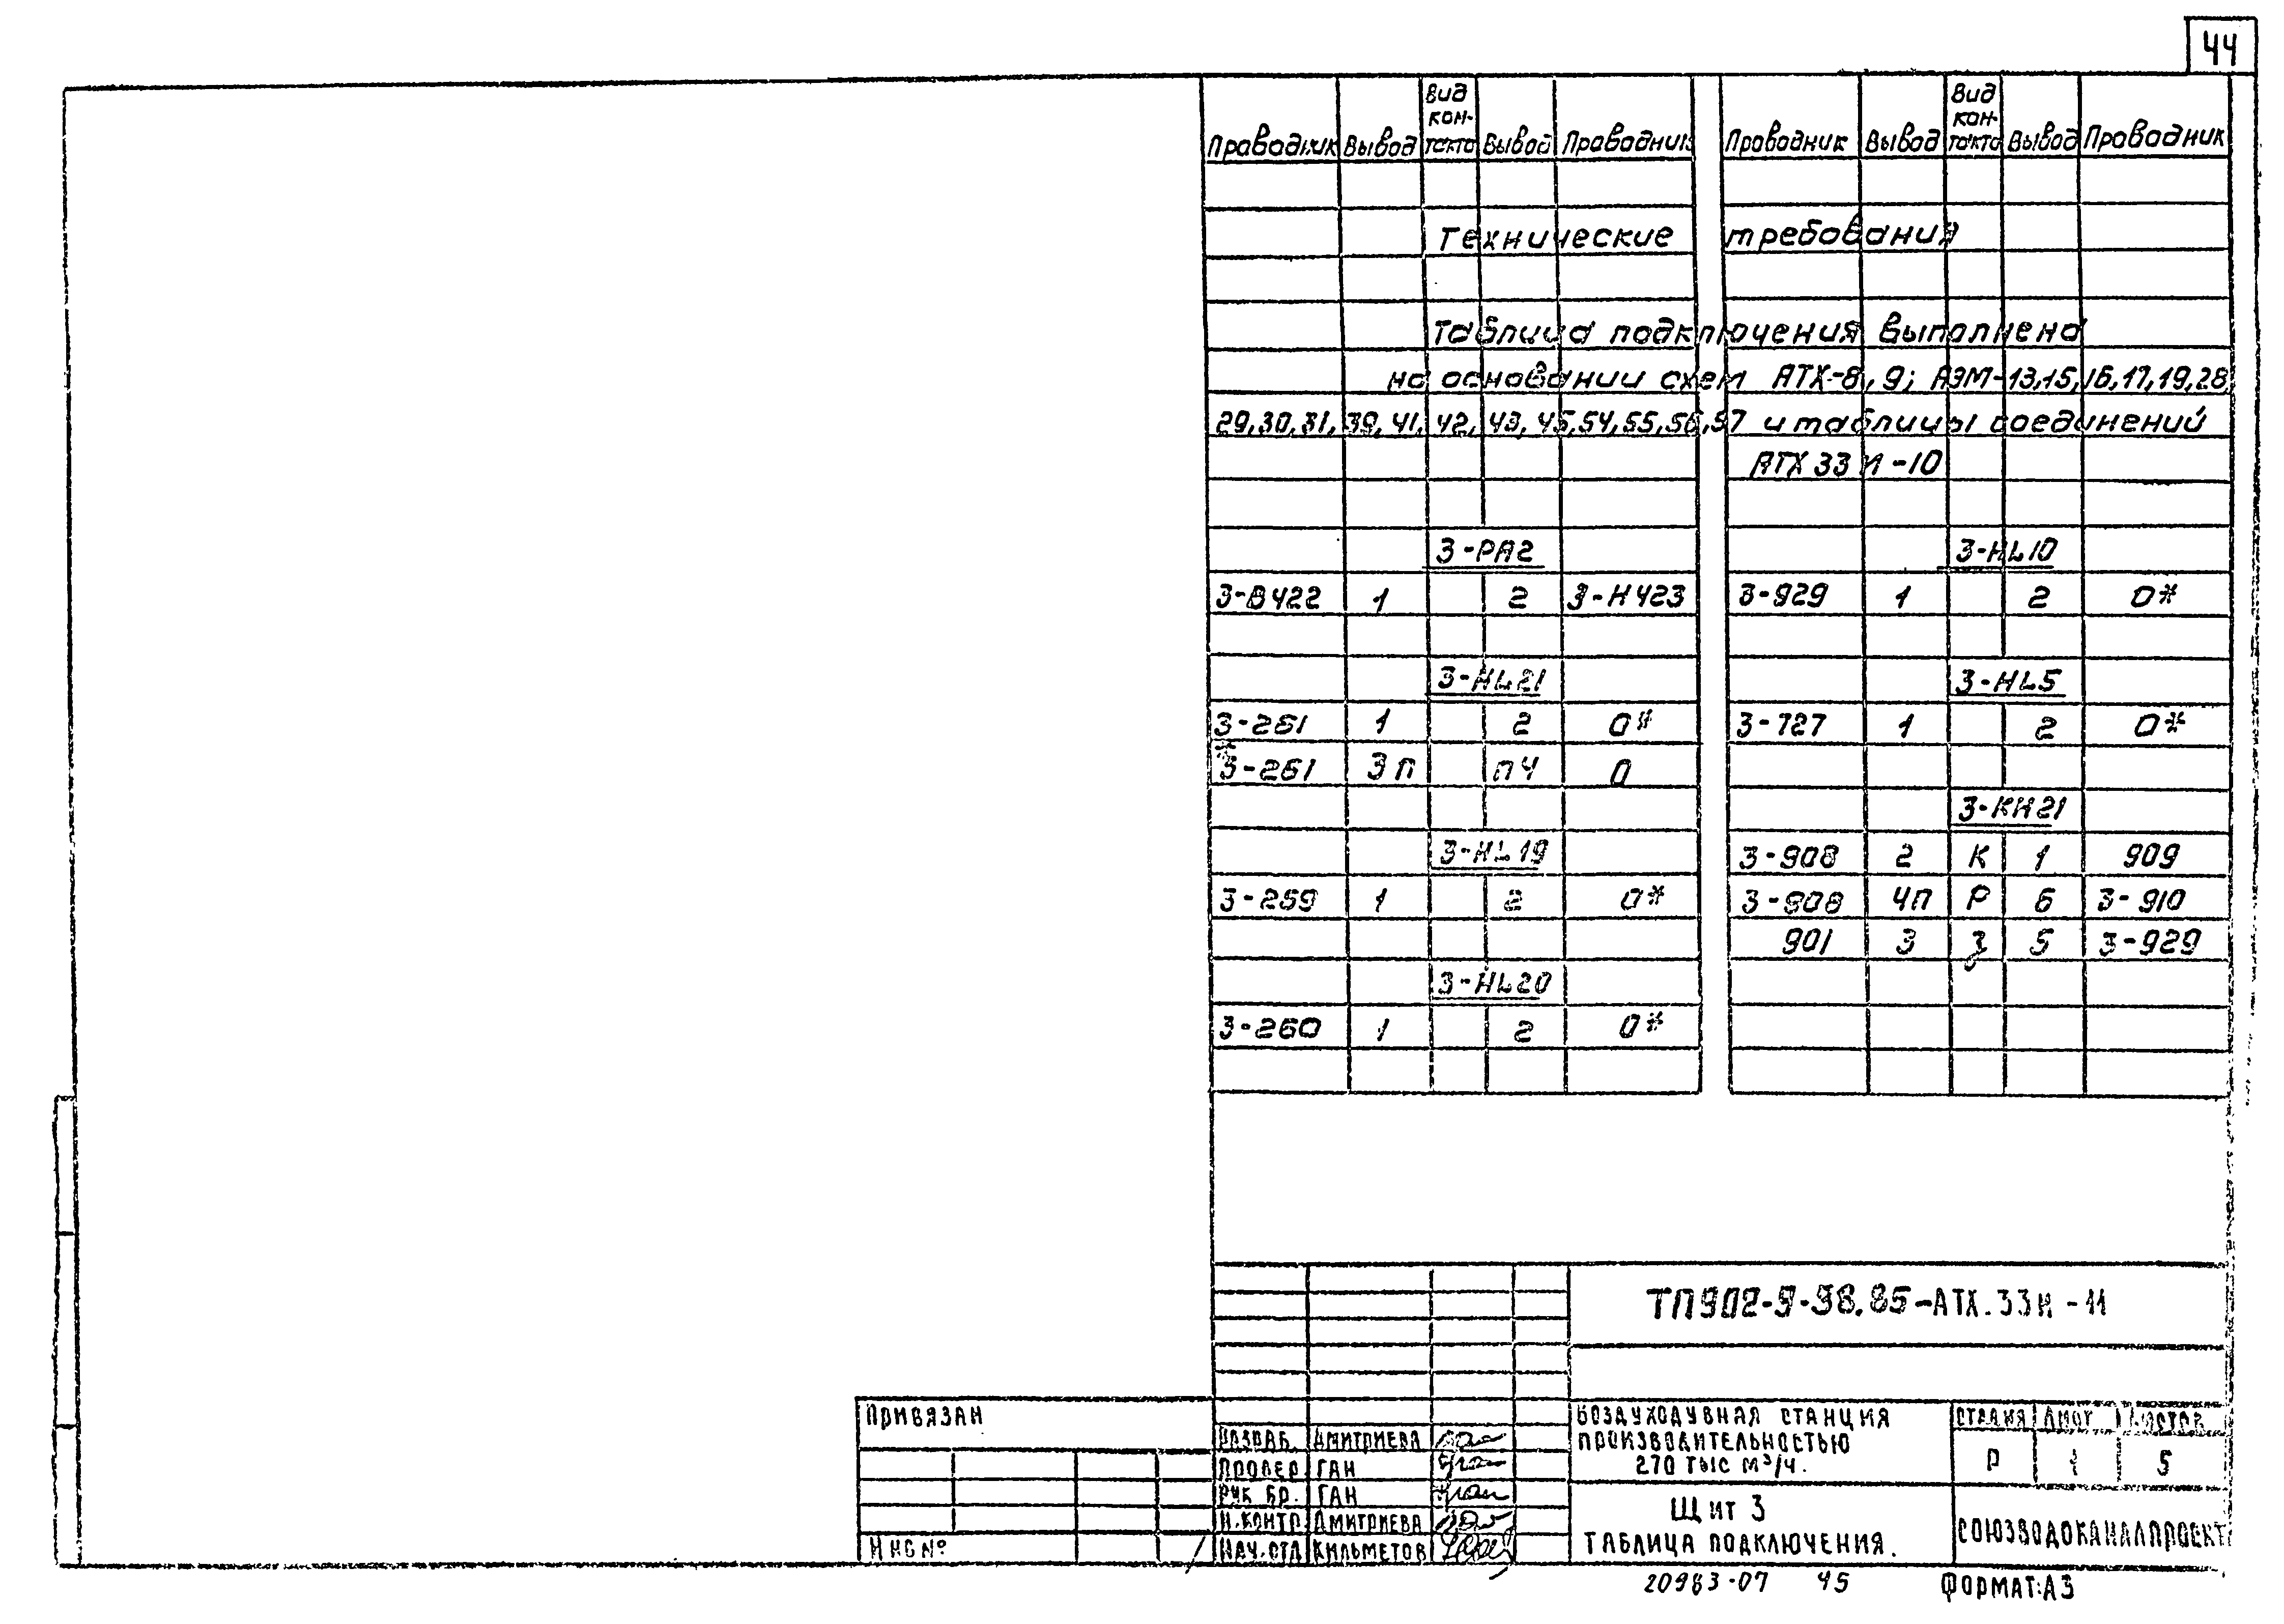 44
Проводник Вывод Вид контакта Вывод Проводник
Проводник Вывод Вид контакта Вывод Проводник
Технические требования
Таблица подключения выполнена
на основании схем АТХ-8, 9; АЭМ-13,15,16,17,19,28,
29,30,31,39,41,42,43,45,54,55,56,57 и таблицы соединений
АТХ 33И-10
3-РА2
3-В422 1 2 3-Н423
3-HL21
3-261 1 2 0*
3-261* 3П П4 0
3-HL19
3-259 1 2 0*
3-HL20
3-260 1 2 0*
3-HL10
3-929 1 2 0*
3-HL5
3-727 1 2 0*
3-КН21
3-908 2 К 1 909
3-908 4П Р 6 3-910
901 3 З 5 3-929
ТП902-9-38.85-АТХ.33И-11
Привязан
Инв №
Разраб. Дмитриева
Провер. Ган
Рук бр. Ган
Н.контр. Дмитриева
Нач.отд Кильметов
Воздуходувная станция
производительностью
270 тыс м³/ч.
Стадия Лист Листов
Р 1 5
Щит 3
Таблица подключения.
Союзводоканалпроект
20983-07 45 Формат:А3